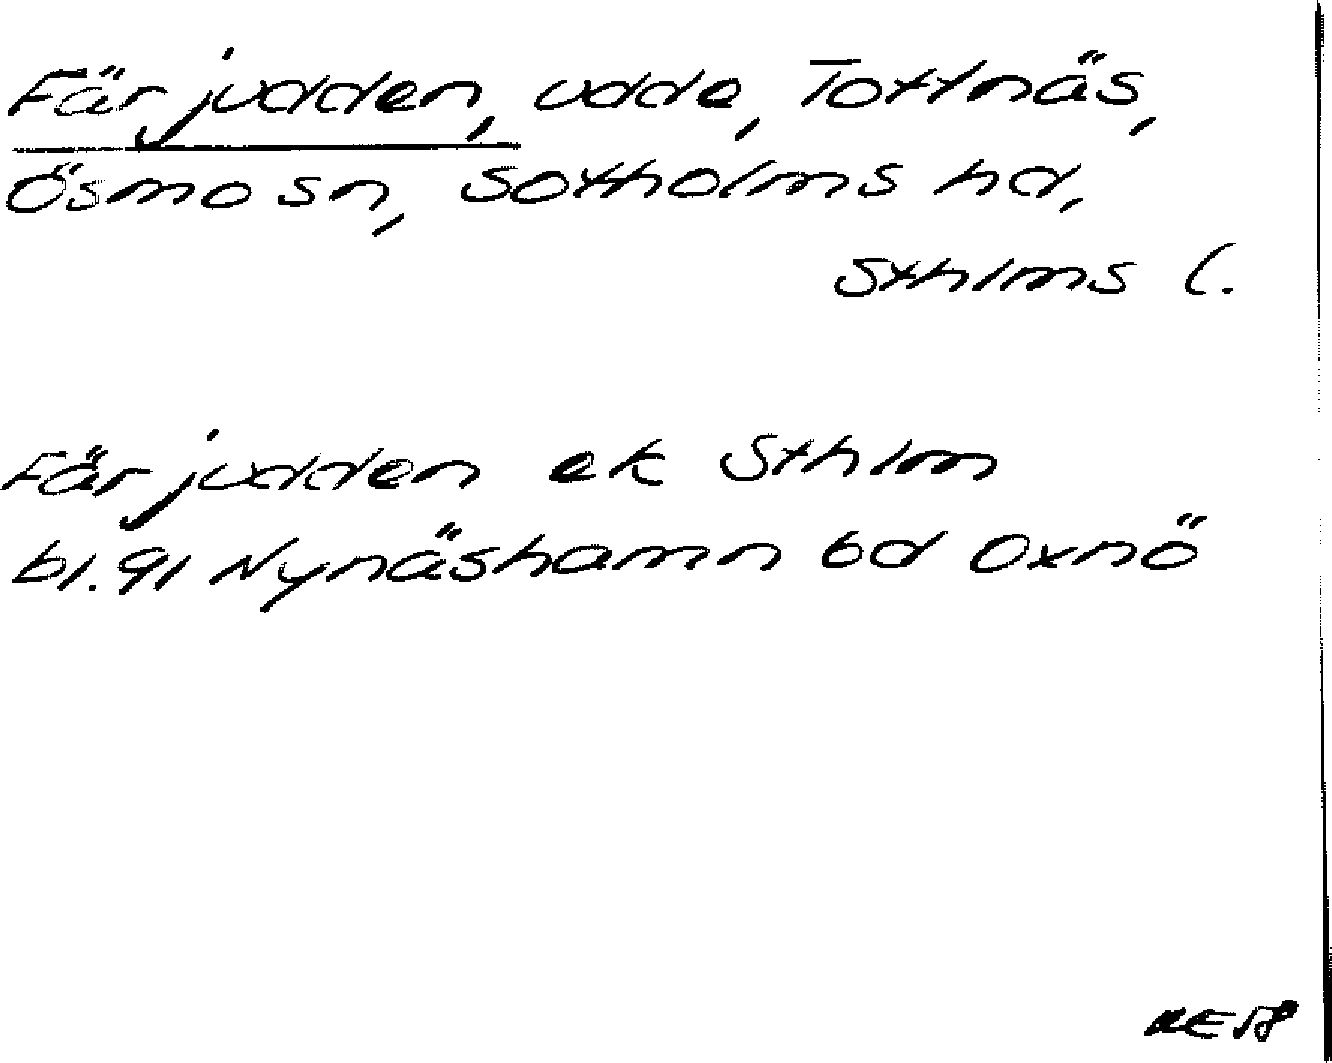 Färjudden, udde, Tottnäs,
Ösmo sn, Sotholms hd,
Sthlms l.
Färjudden ek Sthlm
bl. 91 Nynäshamn bd Oxnö